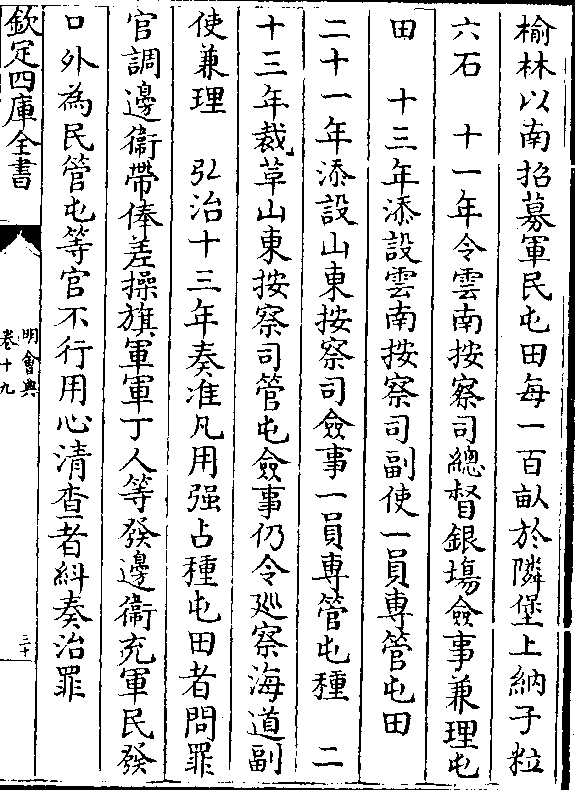 榆林以南招募軍民屯田每一百畝於隣堡上納子粒
六石　十一年令雲南按察司總督銀塲僉事兼理屯
田　十三年添設雲南按察司副使一員専管屯田
二十一年添設山東按察司僉事一員専管屯種　二
十三年裁革山東按察司管屯僉事仍令廵察海道副
使兼理　弘治十三年奏准凡用强占種屯田者問罪
官調邊衞帶俸差操旗軍軍丁人等發邊衞充軍民發
口外為民管屯等官不行用心清查者糾奏治罪
欽定四庫全書
明會典
卷十九
三十